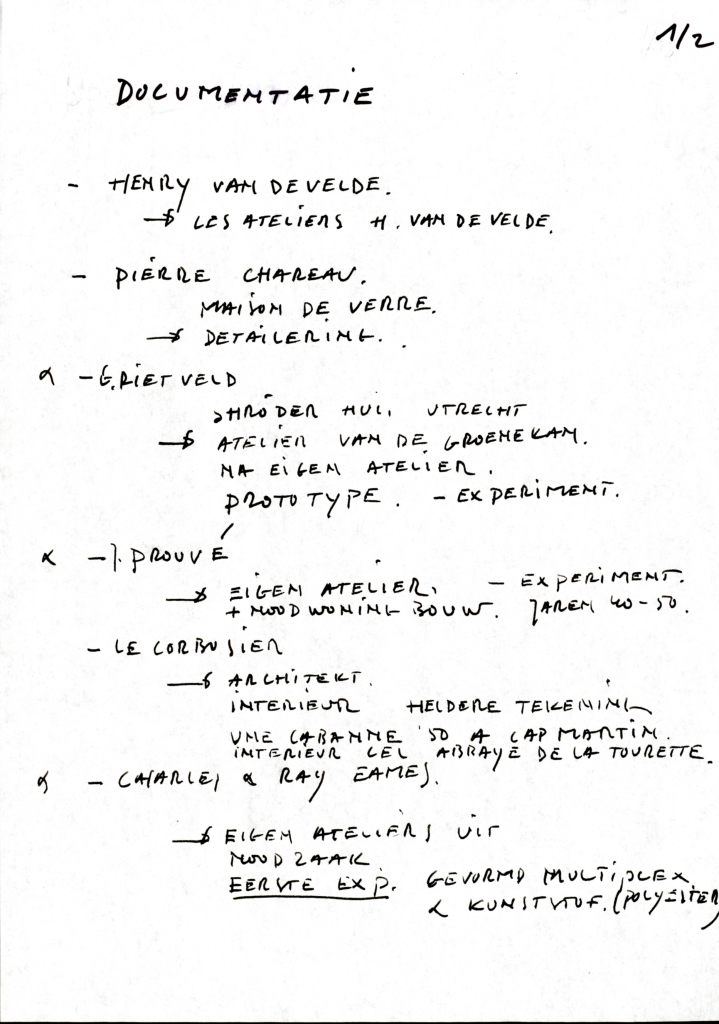 1/2
DOCUMENTATIE
- HENRY VAN DE VELDE.
→ LES ATELIERS H. VAN DE VELDE.
- PIERRE CHAREAU.
MAISON DE VERRE.
→ DETAILERING.
α - G. RIETVELD
SHRÖDER HUIS UTRECHT
→ ATELIER VAN DE GROENEKAN.
NA EIGEN ATELIER.
PROTOTYPE. - EXPERIMENT.
α - J. PROUVÉ
→ EIGEN ATELIER, - EXPERIMENT.
+ NOODWONING BOUW. JAREN 40-50.
- LE CORBUSIER
→ ARCHITEKT.
INTERIEUR HELDERE TEKENING
UNE CABANNE '50 A CAP MARTIN.
INTERIEUR CEL ABBAYE DE LA TOURETTE.
α - CHARLES α RAY EAMES.
→ EIGEN ATELIERS UIT
NOODZAAK
EERSTE EXP. GEVORMD MULTIPLEX
α KUNSTSTOF. (POLYESTER)